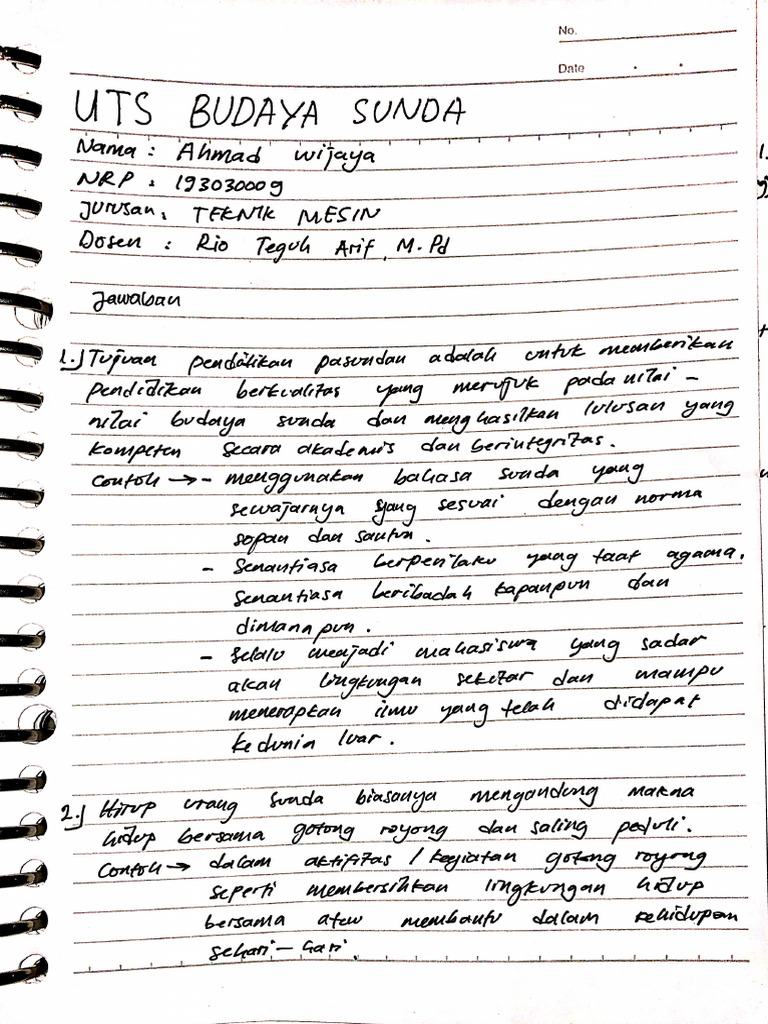 No.
Date
UTS BUDAYA SUNDA
Nama : Ahmad wijaya
NRP : 193030009
Jurusan : TEKNIK MESIN
Dosen : Rio Teguh Arif, M.Pd
Jawaban
1.) Tujuan pendidikan pasundan adalah untuk memberikan
pendidikan berkualitas yang merujuk pada nilai -
nilai budaya sunda dan menghasilkan lulusan yang
kompeten secara akademis dan berintegritas.
contoh → - menggunakan bahasa sunda yang
sewajarnya yang sesuai dengan norma
sopan dan santun.
- Senantiasa berperilaku yang taat agama.
senantiasa beribadah kapanpun dan
dimanapun.
- selalu menjadi mahasiswa yang sadar
akan lingkungan sekitar dan mampu
menerapkan ilmu yang telah didapat
kedunia luar.
2.) Hirup urang sunda biasanya mengandung makna
hidup bersama gotong royong dan saling peduli.
Contoh → dalam aktifitas / kegiatan gotong royong
seperti membersihkan lingkungan hidup
bersama atau membantu dalam kehidupan
sehari - hari.